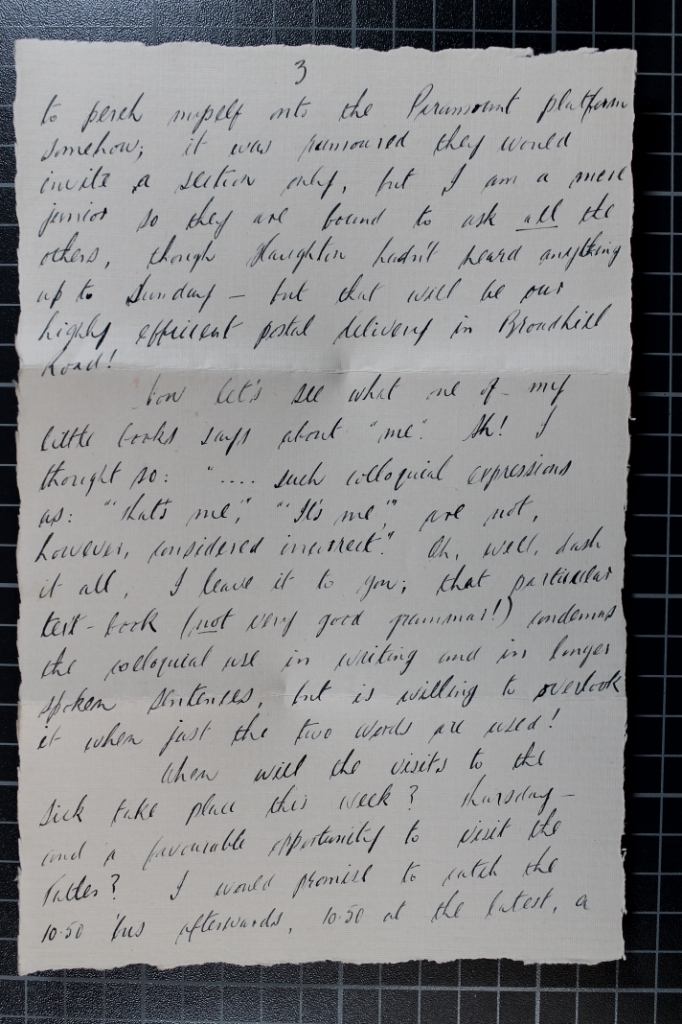 3
to perch myself onto the Paramount platform
somehow; it was rumoured they would
invite a section only, but I am a mere
junior so they are bound to ask all the
others, though Haughton hadn't heard anything
up to Sunday — but that will be our
highly efficient postal delivery in Broadhill
Road!
Now let's see what one of my
little books says about "me". Ah! I
thought so: ".... such colloquial expressions
as: "'that's me'," "'It's me'," are not,
however, considered incorrect." Oh, well, dash
it all, I leave it to you; that particular
text-book (not very good grammar!) condemns
the colloquial use in writing and in longer
spoken sentences, but is willing to overlook
it when just the two words are used!
When will the visits to the
sick take place this week? Thursday —
and a favourable opportunity to visit the
Tatler? I would promise to catch the
10.50 'bus afterwards, 10.50 at the latest, a